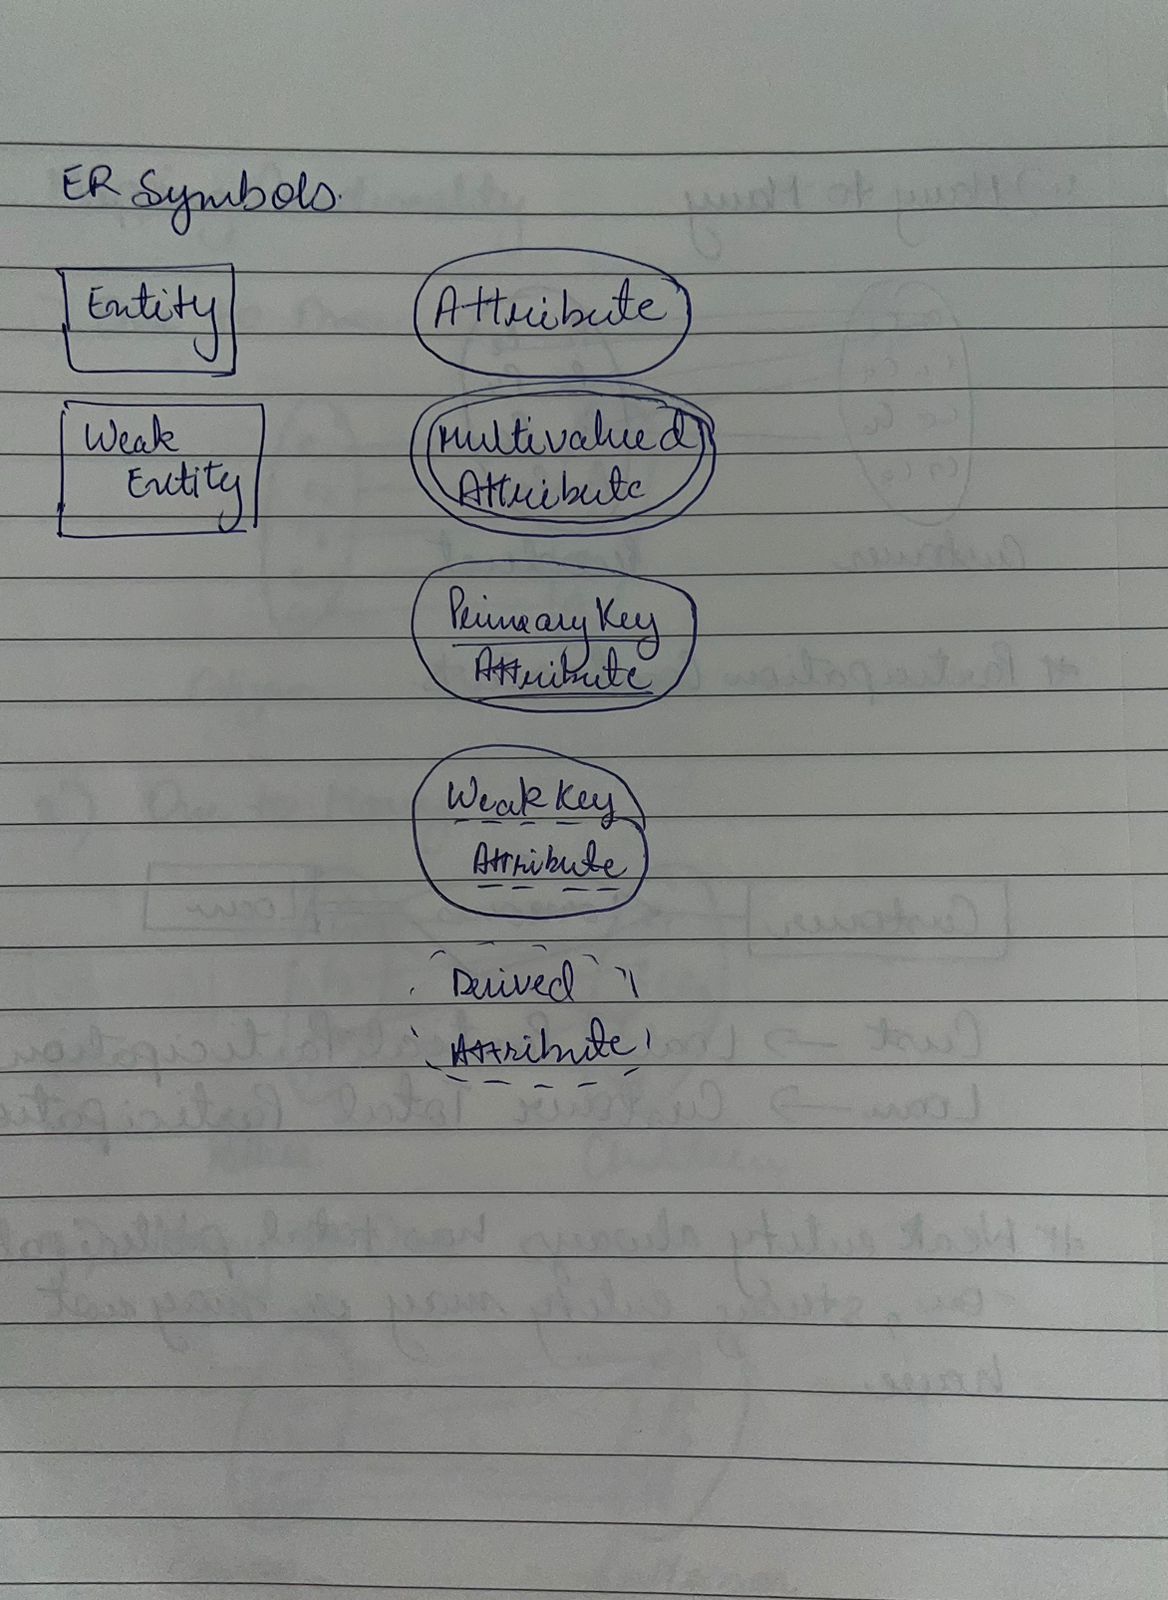 ER Symbols.
Entity
Attribute
Weak
Entity
Multivalued
Attribute
Primary Key
Attribute
Weak Key
Attribute
Derived
Attribute